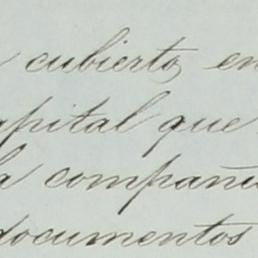 cubierto, en
capital que
la compañí
documentos